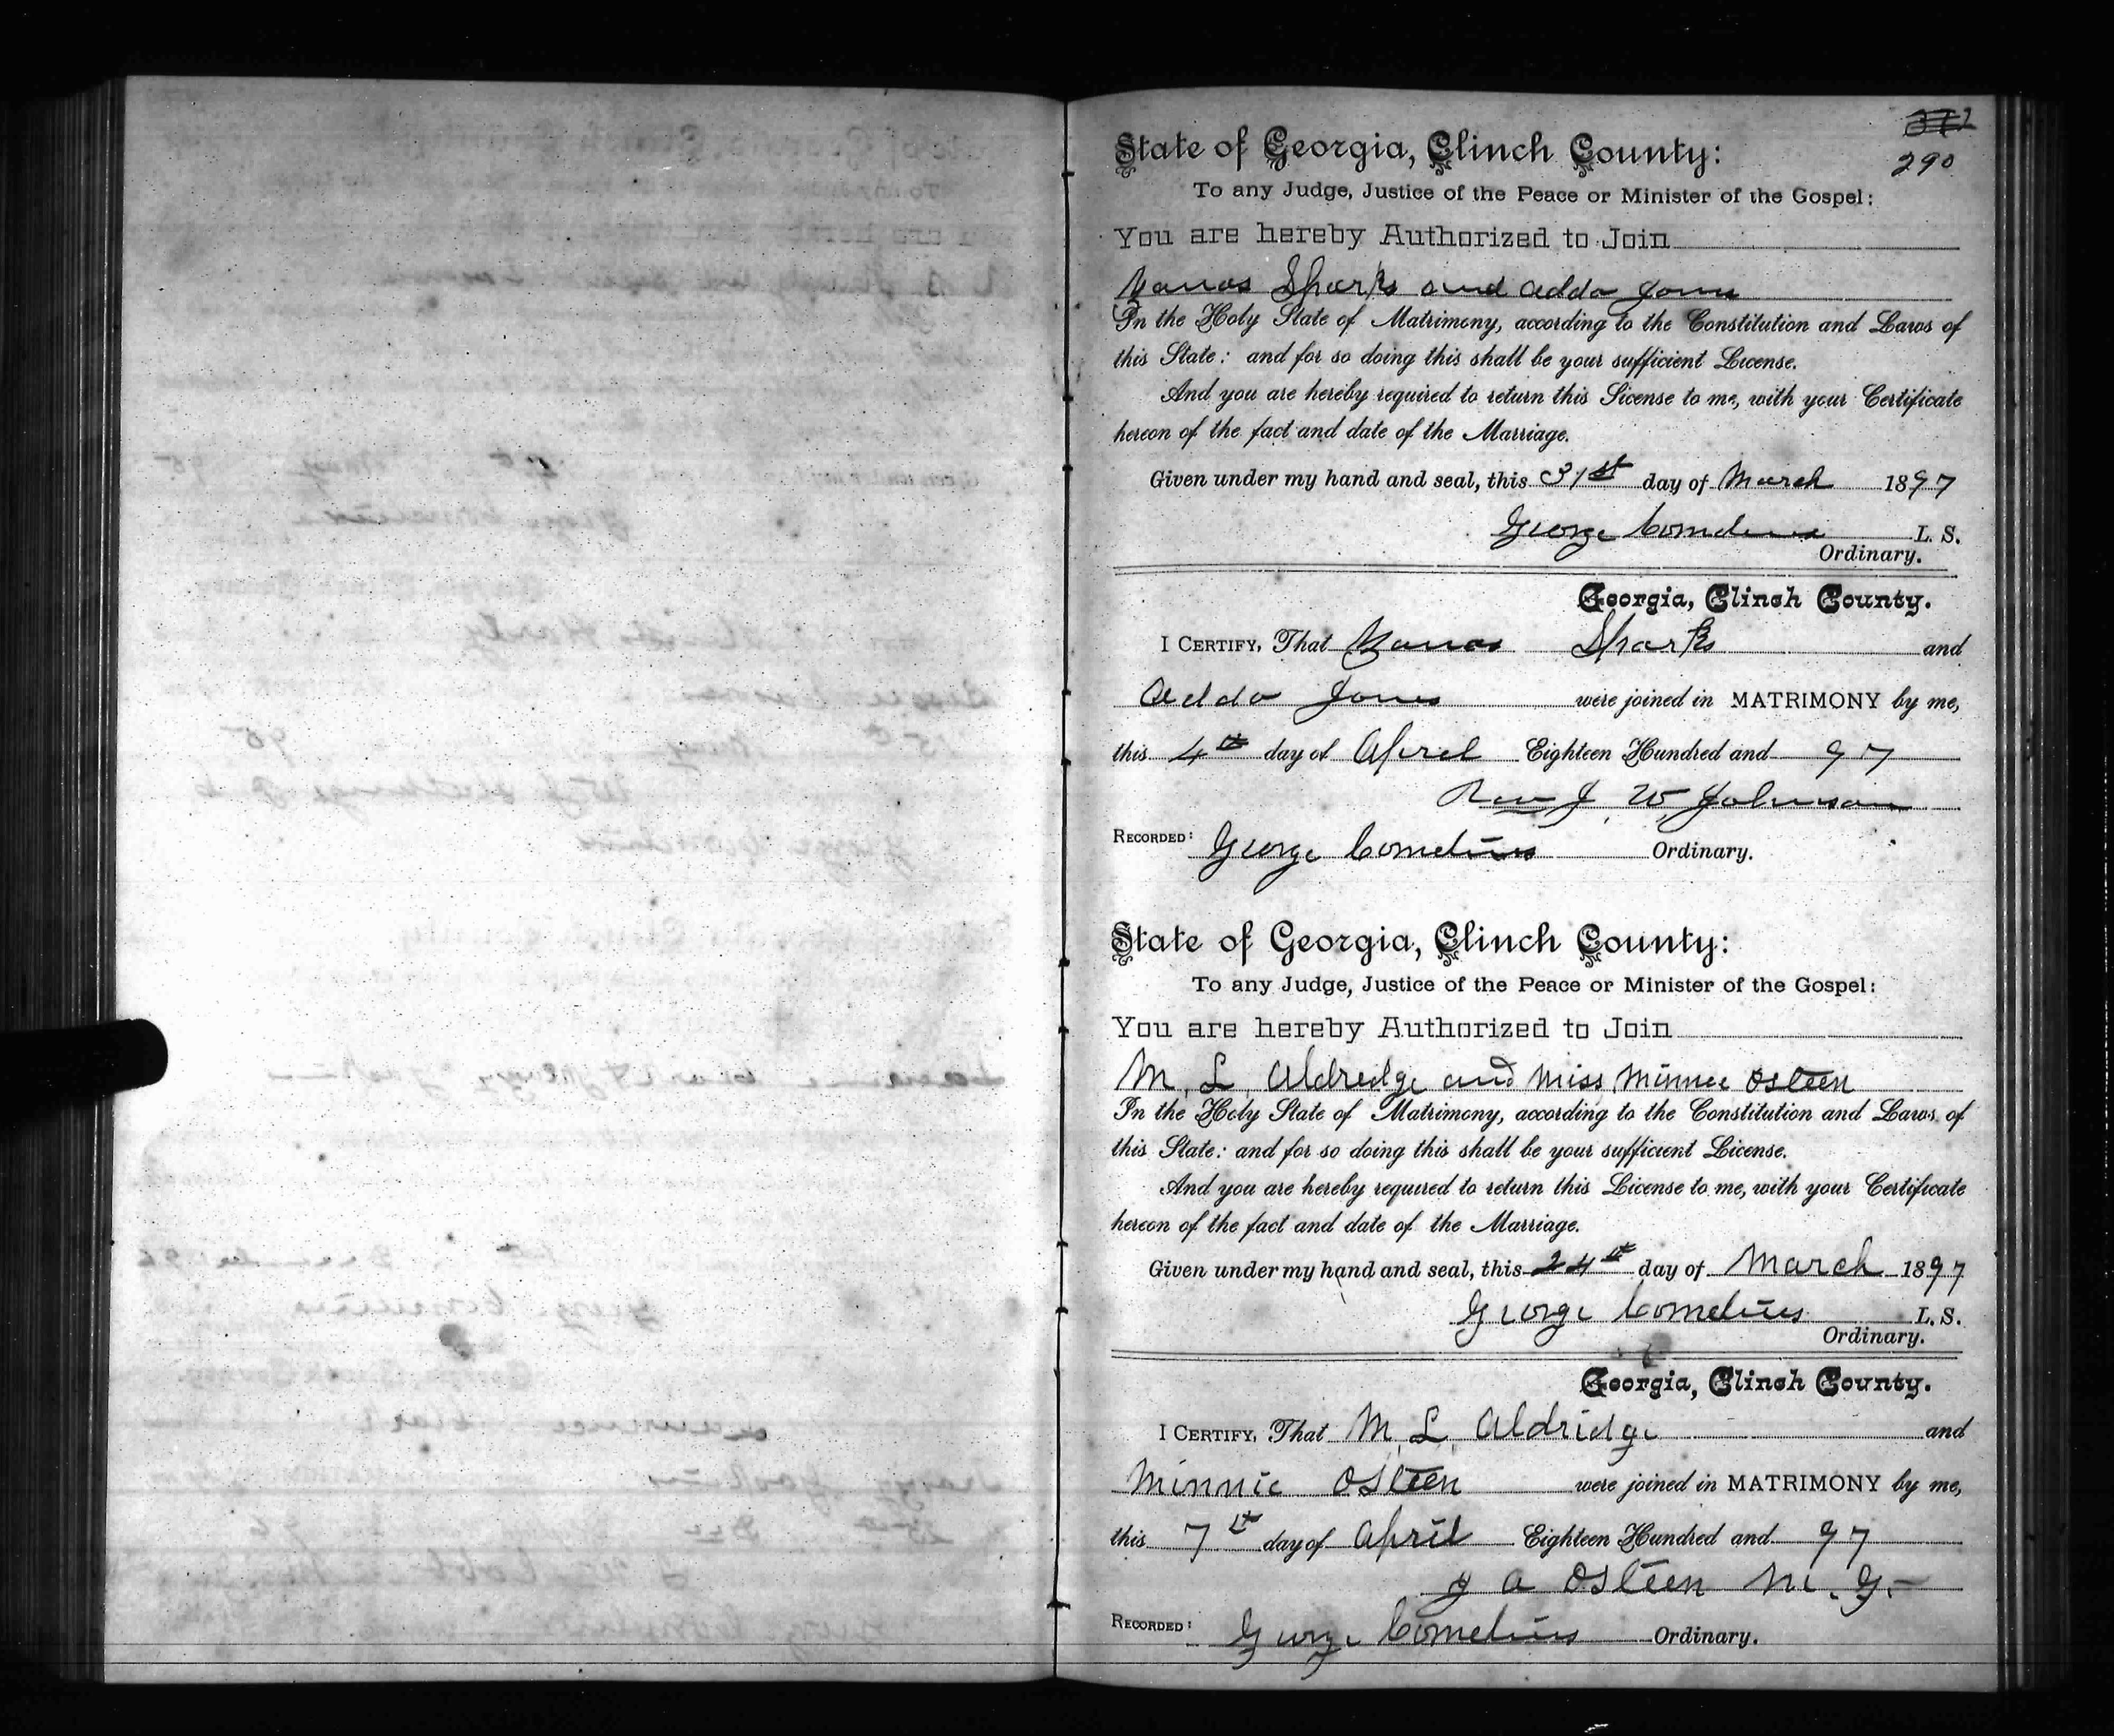 290
State of Georgia, Clinch County:
To any Judge, Justice of the Peace or Minister of the Gospel:
You are hereby Authorized to Join
Sharks and Adda Jones
In the Holy State of Matrimony, according to the Constitution and Laws of
this State: and for so doing this shall be your sufficient License.
And you are hereby required to return this License to me, with your Certificate
hereon of the fact and date of the Marriage.
Given under my hand and seal, this 31st day of March 1897
George Cornelius L. S.
Ordinary.
Georgia, Clinch County.
I CERTIFY, That Sharks and
Adda Jones were joined in MATRIMONY by me,
this 4th day of April Eighteen Hundred and 97
Rev J. W. Johnson
RECORDED: George Cornelius Ordinary.
State of Georgia, Clinch County:
To any Judge, Justice of the Peace or Minister of the Gospel:
You are hereby Authorized to Join
M. L. Aldredge and Miss Minnee Osteen
In the Holy State of Matrimony, according to the Constitution and Laws of
this State: and for so doing this shall be your sufficient License.
And you are hereby required to return this License to me, with your Certificate
hereon of the fact and date of the Marriage.
Given under my hand and seal, this 24th day of March 1897
George Cornelius L. S.
Ordinary.
Georgia, Clinch County.
I CERTIFY, That M. L. Aldridge and
Minnie Osteen were joined in MATRIMONY by me,
this 7th day of April Eighteen Hundred and 97
J A Osteen M. G.
RECORDED: George Cornelius Ordinary.